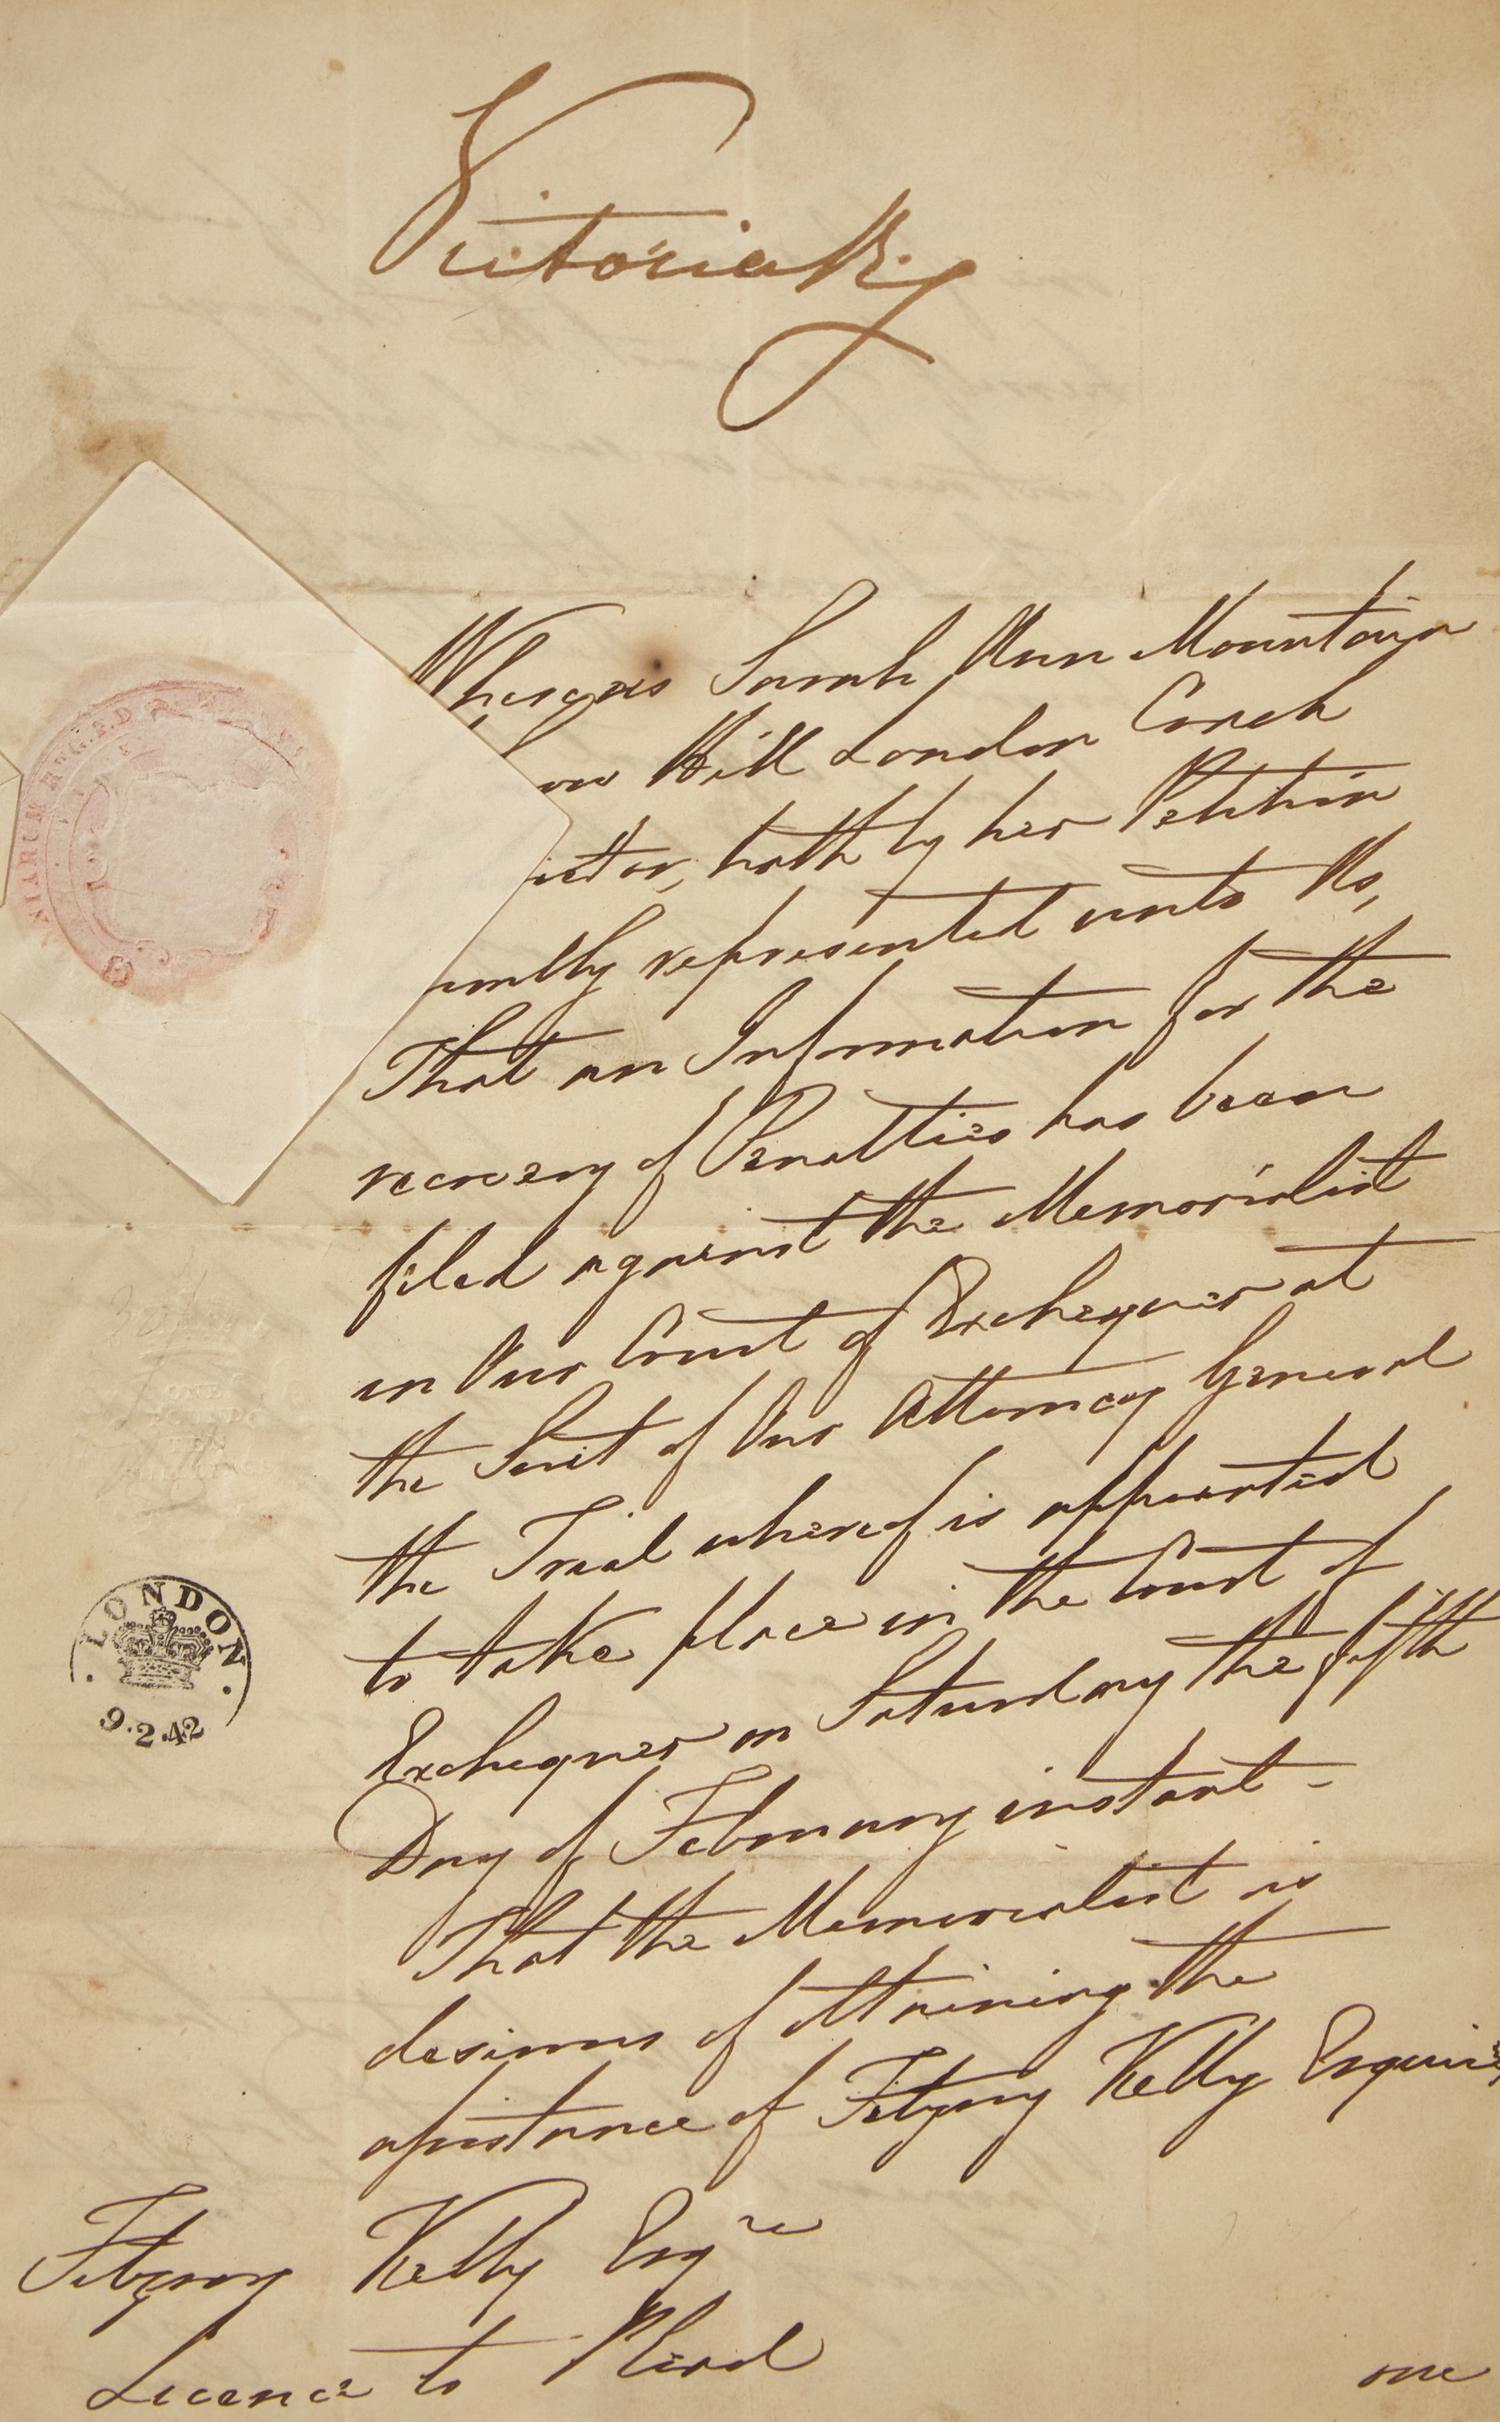 Victoria R.
Whereas Sarah Ann Mountain
ow Hill London Coach
ietor, hath by her Petition
umbly represented unto Us,
That an Information for the
recovery of Penalties has been
filed against the Memorialist
in Our Court of Exchequer at
the Suit of Our Attorney General
the Trial whereof is appointed
to take place in the Court of
Exchequer on Saturday the fifth
Day of February instant -
That the Memorialist is
desirous of obtaining the
assistance of Fitzroy Kelly Esquire,
Fitzroy Kelly Esqre
Licence to Plead
one
ONE
POUND
TEN
LONDON
9.2.42